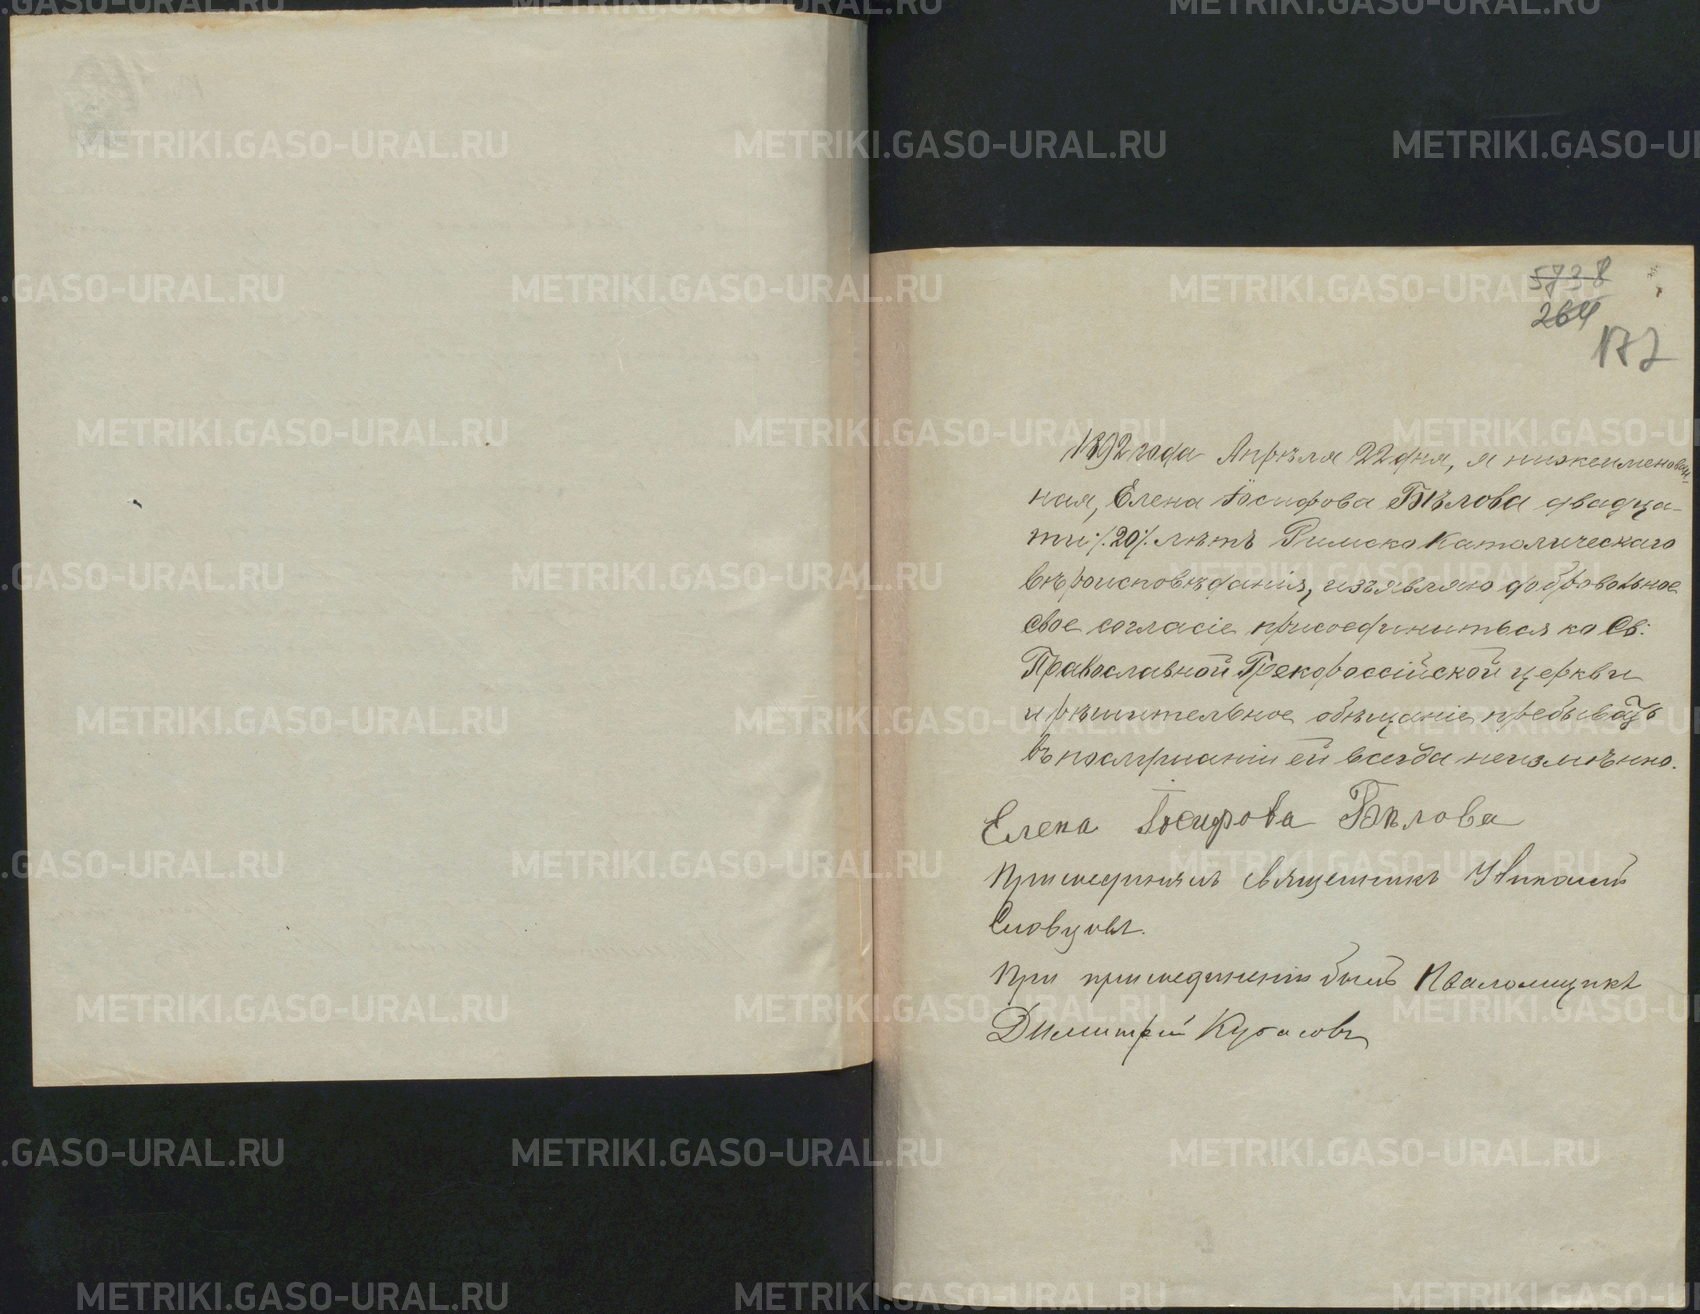 5738
264
177
1892 года Апрѣля 22 дня, я нижеименован-
ная, Елена Іосифова Бѣлова двадца-
ти /.20/. лѣтъ Римско Католическаго
вѣроисповѣданія, изъявляю добровольное
свое согласіе присоединиться ко Св:
Православной Грекороссійской церкви
и рѣшительное обѣщаніе пребывать
въ послушаніи ей всегда неизмѣнно.
Елена Іосифова Бѣлова
Присоединялъ священникъ Николай
Словцовъ.
При присоединеніи былъ Псаломщикъ
Димитрій
METRIKI.GASO-URAL.RU